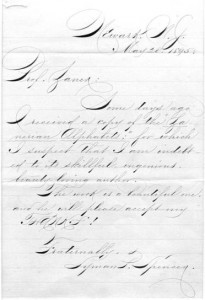 Newark, N.J.
May 20" 1895.
Prof. Zaner.
Some days ago
I received a copy of the Za-
nerian Alphabets, for which
I suspect that I am indebt-
ed to its skillful, ingenious
author.
The work is a beautiful one
and he will please accept my
Fraternally,
Lyman P. Spencer.